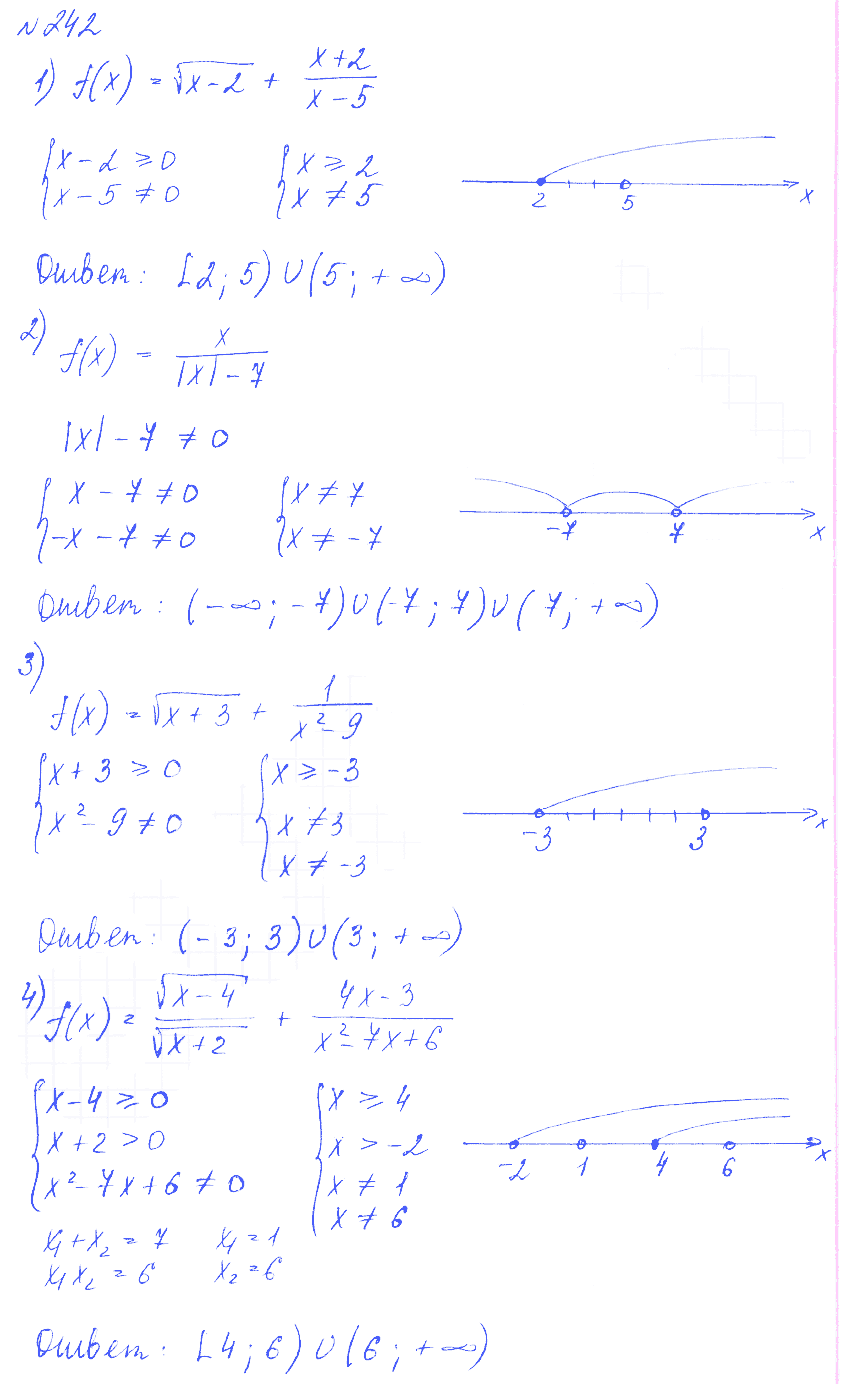 №242
1) f(x) = √(x-2) + (x+2)/(x-5)
{ x-2 ≥ 0 { x ≥ 2
{ x-5 ≠ 0 { x ≠ 5
2 5 x
Ответ: [2; 5) ∪ (5; +∞)
2) f(x) = x/(|x|-7)
|x| - 7 ≠ 0
{ x - 7 ≠ 0 { x ≠ 7
{ -x - 7 ≠ 0 { x ≠ -7
-7 7 x
Ответ: (-∞; -7) ∪ (-7; 7) ∪ (7; +∞)
3)
f(x) = √(x+3) + 1/(x²-9)
{ x+3 ≥ 0 { x ≥ -3
{ x²-9 ≠ 0 { x ≠ 3
{ x ≠ -3
-3 3 x
Ответ: (-3; 3) ∪ (3; +∞)
4) f(x) = √(x-4)/√(x+2) + (4x-3)/(x²-7x+6)
{ x-4 ≥ 0 { x ≥ 4
{ x+2 > 0 { x > -2
{ x²-7x+6 ≠ 0 { x ≠ 1
{ x ≠ 6
-2 1 4 6 x
x₁+x₂ = 7 x₁ = 1
x₁x₂ = 6 x₂ = 6
Ответ: [4; 6) ∪ (6; +∞)